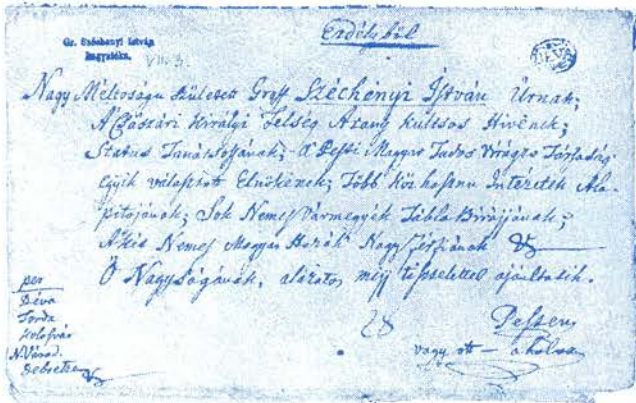 Erdélyből
Gr. Széchenyi István
hagyatéka.
VIII. 3.
Nagy Méltóságu Született Gróff Széchényi István Úrnak;
A Császári Királyi Felség Arany Kúltsos Hívének;
Status Tanátsossának; A Pesti Magyar Tudos Társaság
egyik választott Elnökének; Több Köz hasznu Intézeték Ala-
pitojának; Sok Nemes Vármegyék Tábla Birájjának;
A kis Nemes Magyar Hazák Nagy Férfiának
Ő Nagyságának, alázatos tisztelettel ajánltatik.
per
Déva
Torda
Kolosvár
N.Várad.
Debretzen
28
Pesten
vagy ott — a hol van